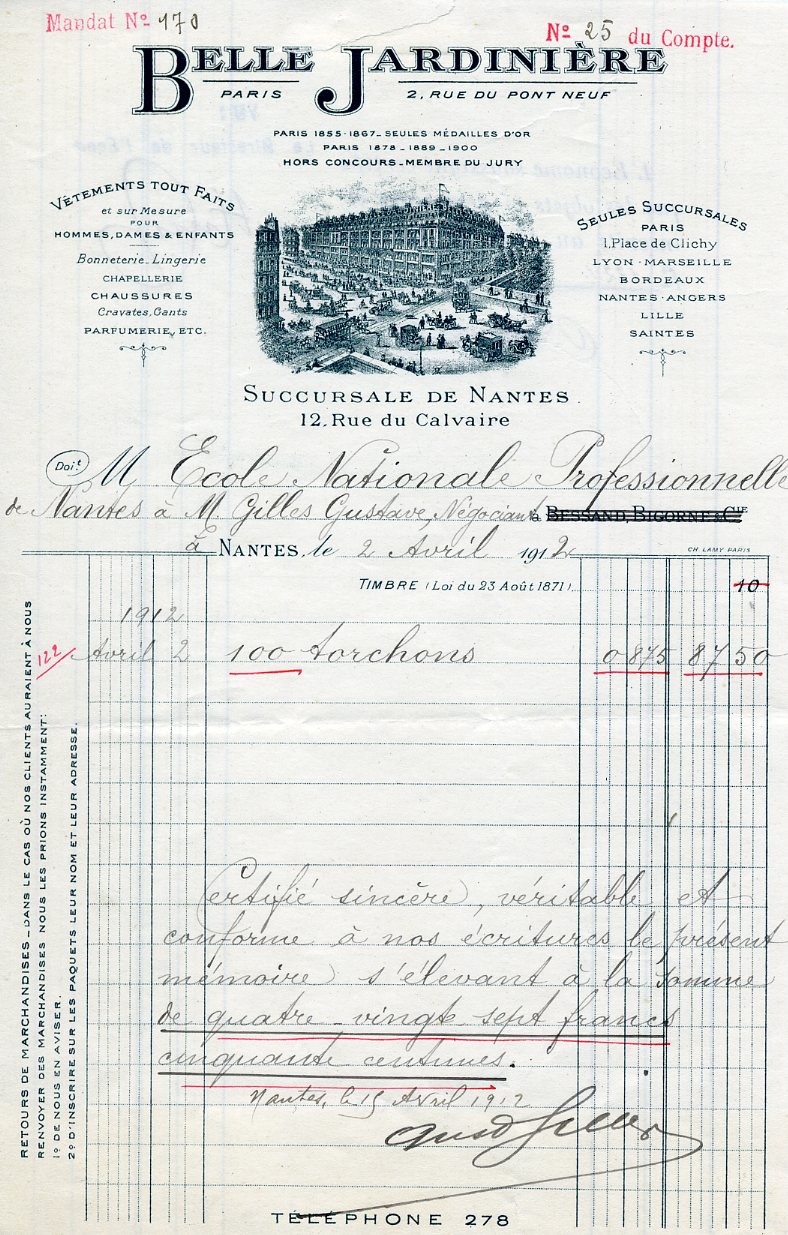 Mandat Nº 170
Nº 25 du Compte.
BELLE JARDINIÈRE
PARIS 2, RUE DU PONT NEUF
PARIS 1855-1867_SEULES MÉDAILLES D'OR
PARIS 1878_1889_1900
HORS CONCOURS_MEMBRE DU JURY
VÊTEMENTS TOUT FAITS
et sur Mesure
POUR
HOMMES, DAMES & ENFANTS
Bonneterie_Lingerie
CHAPELLERIE
CHAUSSURES
Cravates, Gants
PARFUMERIE, ETC.
SEULES SUCCURSALES
PARIS
1, Place de Clichy
LYON - MARSEILLE
BORDEAUX
NANTES - ANGERS
LILLE
SAINTES
SUCCURSALE DE NANTES.
12, Rue du Calvaire
Doit M Ecole Nationale Professionnelle
de Nantes à M Gilles Gustave, Négociant à BESSAND, BIGORNE & CIE
à NANTES, le 2 Avril 1912
CH. LAMY PARIS
TIMBRE (Loi du 23 Août 1871) 10
1912
122 Avril 2 100 torchons 0 875 87 50
Certifié sincère, véritable et
conforme à nos écritures le présent
mémoire s'élevant à la somme
de quatre-vingt sept francs
cinquante centimes.
Nantes, le 15 Avril 1912
TÉLÉPHONE 278
RETOURS DE MARCHANDISES_DANS LE CAS OÙ NOS CLIENTS AURAIENT À NOUS
RENVOYER DES MARCHANDISES NOUS LES PRIONS INSTAMMENT:
1º DE NOUS EN AVISER.
2º D'INSCRIRE SUR LES PAQUETS LEUR NOM ET LEUR ADRESSE.